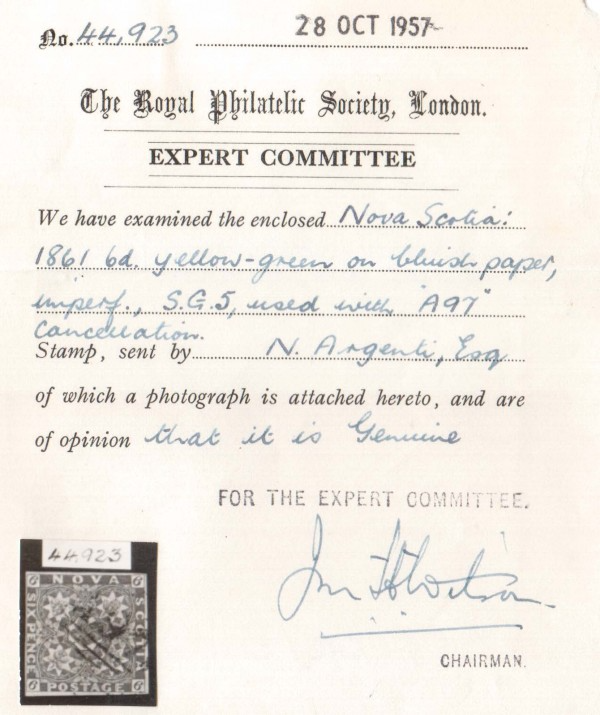 No. 44,923 28 OCT 1957
The Royal Philatelic Society, London.
EXPERT COMMITTEE
We have examined the enclosed Nova Scotia:
1861 6d. yellow-green on bluish paper,
imperf., S.G.5, used with "A97"
Cancellation.
Stamp, sent by N. Argenti, Esq
of which a photograph is attached hereto, and are
of opinion that it is Genuine
FOR THE EXPERT COMMITTEE.
CHAIRMAN.
44,923
NOVA
SIX PENCE
SCOTIA
POSTAGE